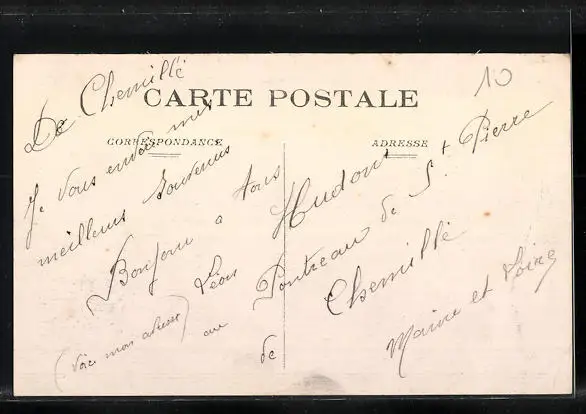 10
De Chemillé
CARTE POSTALE
CORRESPONDANCE
ADRESSE
Je vous envoie mes
meilleurs souvenus
Bonjour a tous
(Voici mon adresse)
Léon Hudont
au Pontreau de St Pierre
de Chemillé
Maine et Loire